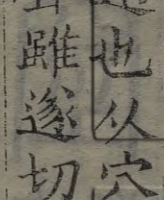 也从穴
雖遂切